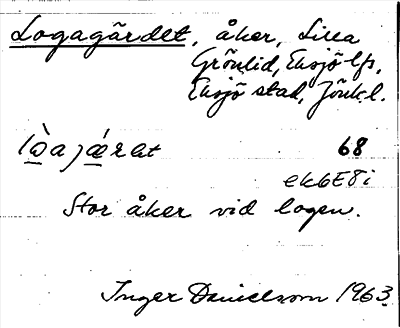 Logagärdet, åker, Lilla
Grönlid, Eksjö lfs,
Eksjö stad, Jönk.l.
68
ek6E8i
Stor åker vid logen.
Inger Danielsson 1963.